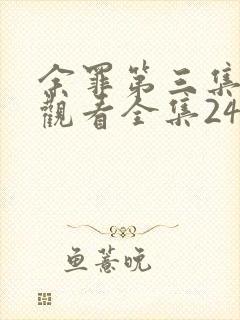 余罪第三集
觀看全集24
鱼薏晚